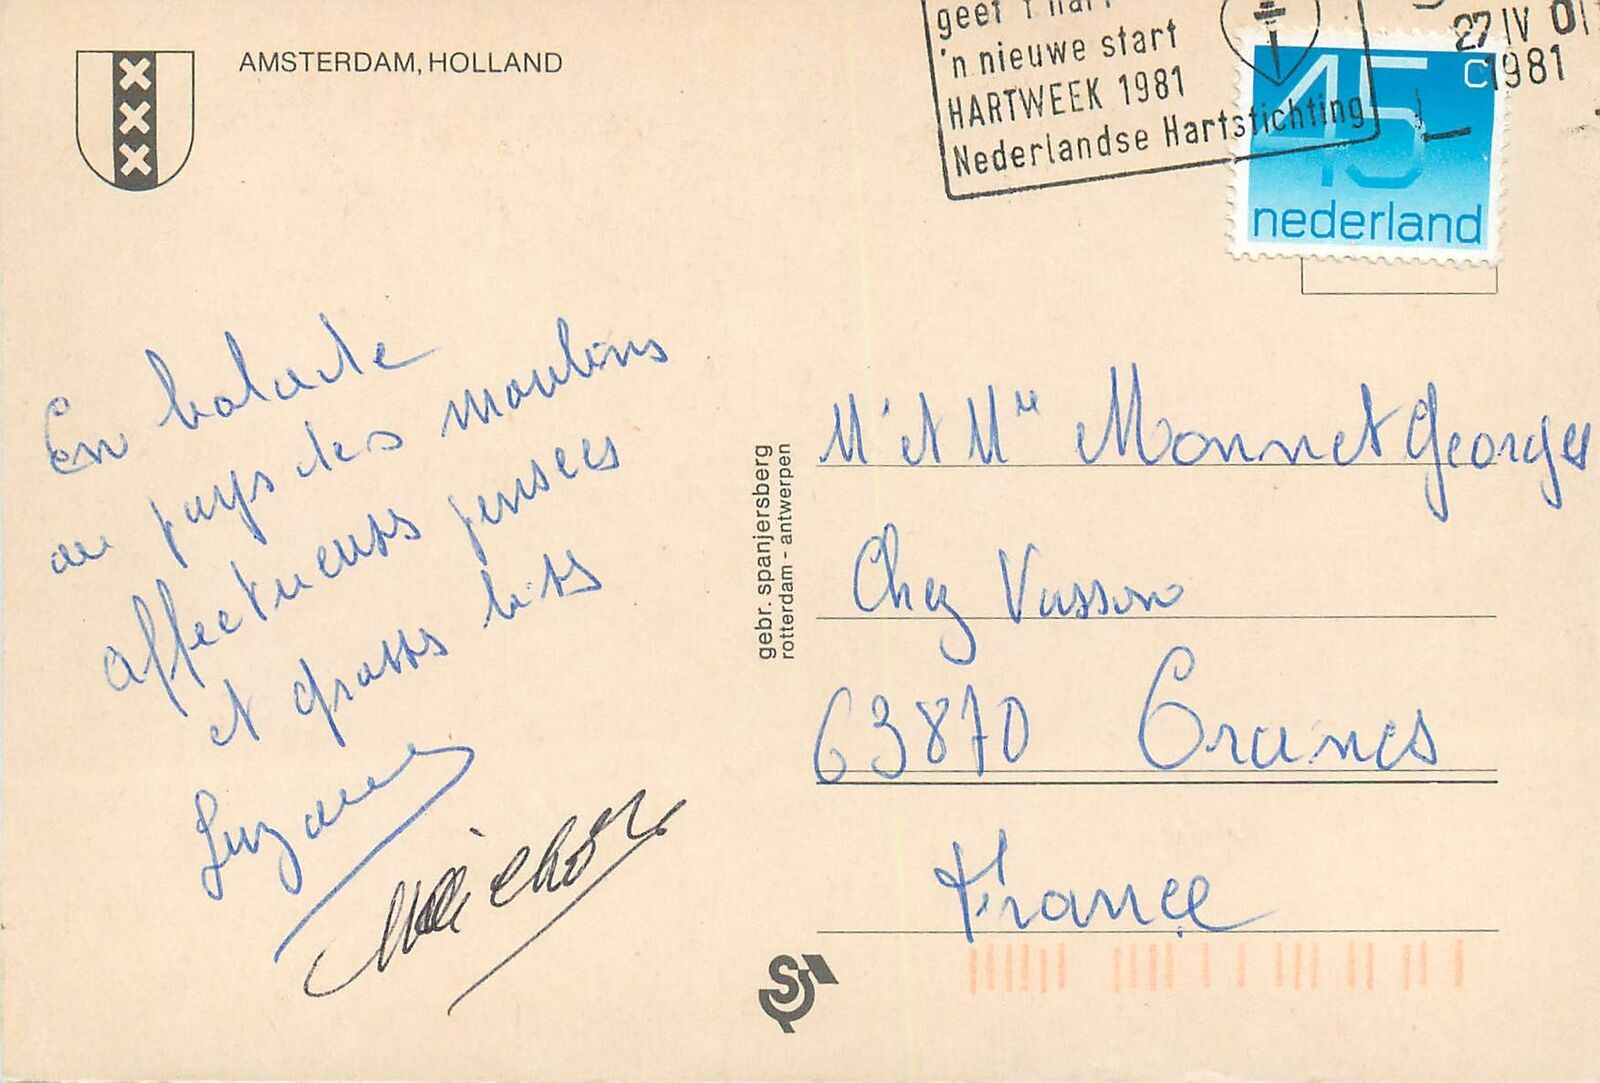 AMSTERDAM, HOLLAND
geef 't hart
'n nieuwe start
HARTWEEK 1981
Nederlandse Hartstichting
27 IV
1981
45 c
nederland
En balade
au pays des moulins
affectueuses pensees
et grosses bises
Suzanne
gebr. spanjersberg
rotterdam - antwerpen
Mr et Mme Monnet Georges
Chez Vasson
63870 Orcines
France